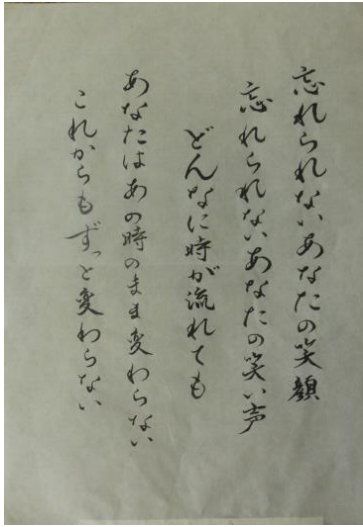 忘れられないあなたの笑顔
忘れられないあなたの笑い声
どんなに時が流れても
あなたはあの時のまま変わらない
これからもずっと変わらない